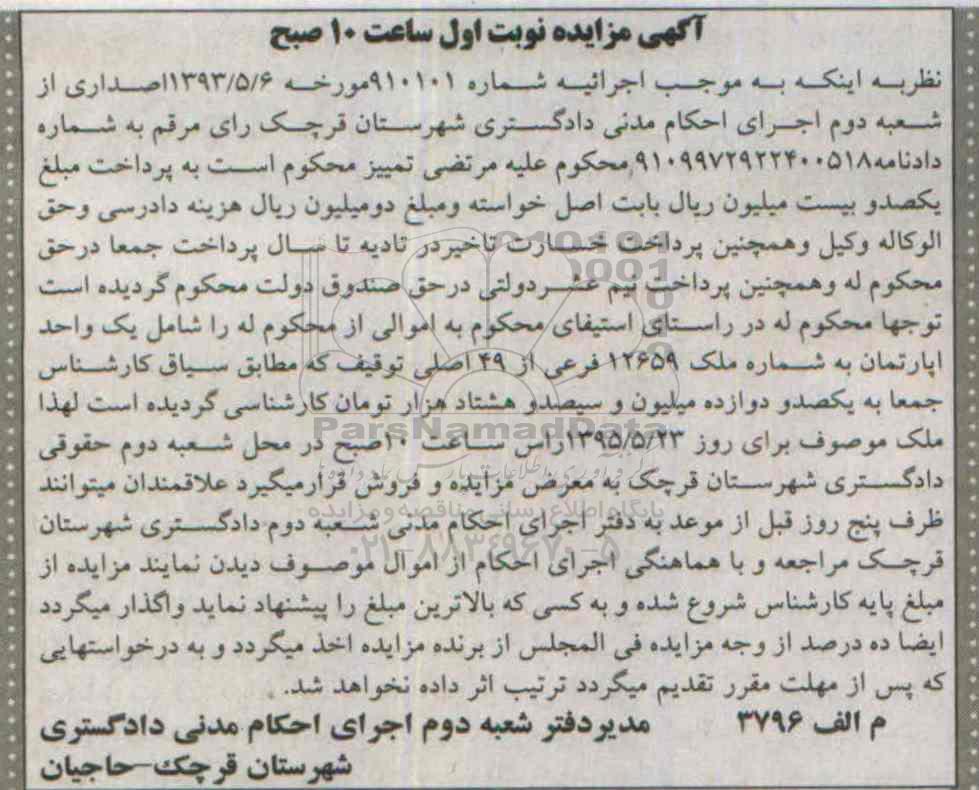 آگهی مزایده نوبت اول ساعت ۱۰ صبح
نظربه اینکه به موجب اجرائیه شماره ۹۱۰۱۰۱مورخه ۱۳۹۳/۵/۶اصداری از
شعبه دوم اجرای احکام مدنی دادگستری شهرستان قرچک رای مرقم به شماره
دادنامه۹۱۰۹۹۷۲۹۲۲۴۰۰۵۱۸محکوم علیه مرتضی تمییز محکوم است به پرداخت مبلغ
یکصدو بیست میلیون ریال بابت اصل خواسته ومبلغ دومیلیون ریال هزینه دادرسی وحق
الوکاله وکیل وهمچنین پرداخت خسارت تاخیردر تادیه تا سال پرداخت جمعا درحق
محکوم له وهمچنین پرداخت نیم عشردولتی درحق صندوق دولت محکوم گردیده است
توجها محکوم له در راستای استیفای محکوم به اموالی از محکوم له را شامل یک واحد
اپارتمان به شماره ملک ۱۲۶۵۹ فرعی از ۴۹ اصلی توقیف که مطابق سیاق کارشناس
جمعا به یکصدو دوازده میلیون و سیصدو هشتاد هزار تومان کارشناسی گردیده است لهذا
ملک موصوف برای روز ۱۳۹۵/۵/۲۳راس ساعت ۱۰صبح در محل شعبه دوم حقوقی
دادگستری شهرستان قرچک به معرض مزایده و فروش قرارمیگیرد علاقمندان میتوانند
ظرف پنج روز قبل از موعد به دفتر اجرای احکام مدنی شعبه دوم دادگستری شهرستان
قرچک مراجعه و با هماهنگی اجرای احکام از اموال موصوف دیدن نمایند مزایده از
مبلغ پایه کارشناس شروع شده و به کسی که بالاترین مبلغ را پیشنهاد نماید واگذار میگردد
ایضا ده درصد از وجه مزایده فی المجلس از برنده مزایده اخذ میگردد و به درخواستهایی
که پس از مهلت مقرر تقدیم میگردد ترتیب اثر داده نخواهد شد.
م الف ۳۷۹۶ مدیردفتر شعبه دوم اجرای احکام مدنی دادگستری
شهرستان قرچک-حاجیان
ParsNamadData
پایگاه اطلاع رسانی مناقصه و مزایده
۰۲۱-۸۸۳۴۹۶۷۰-۵